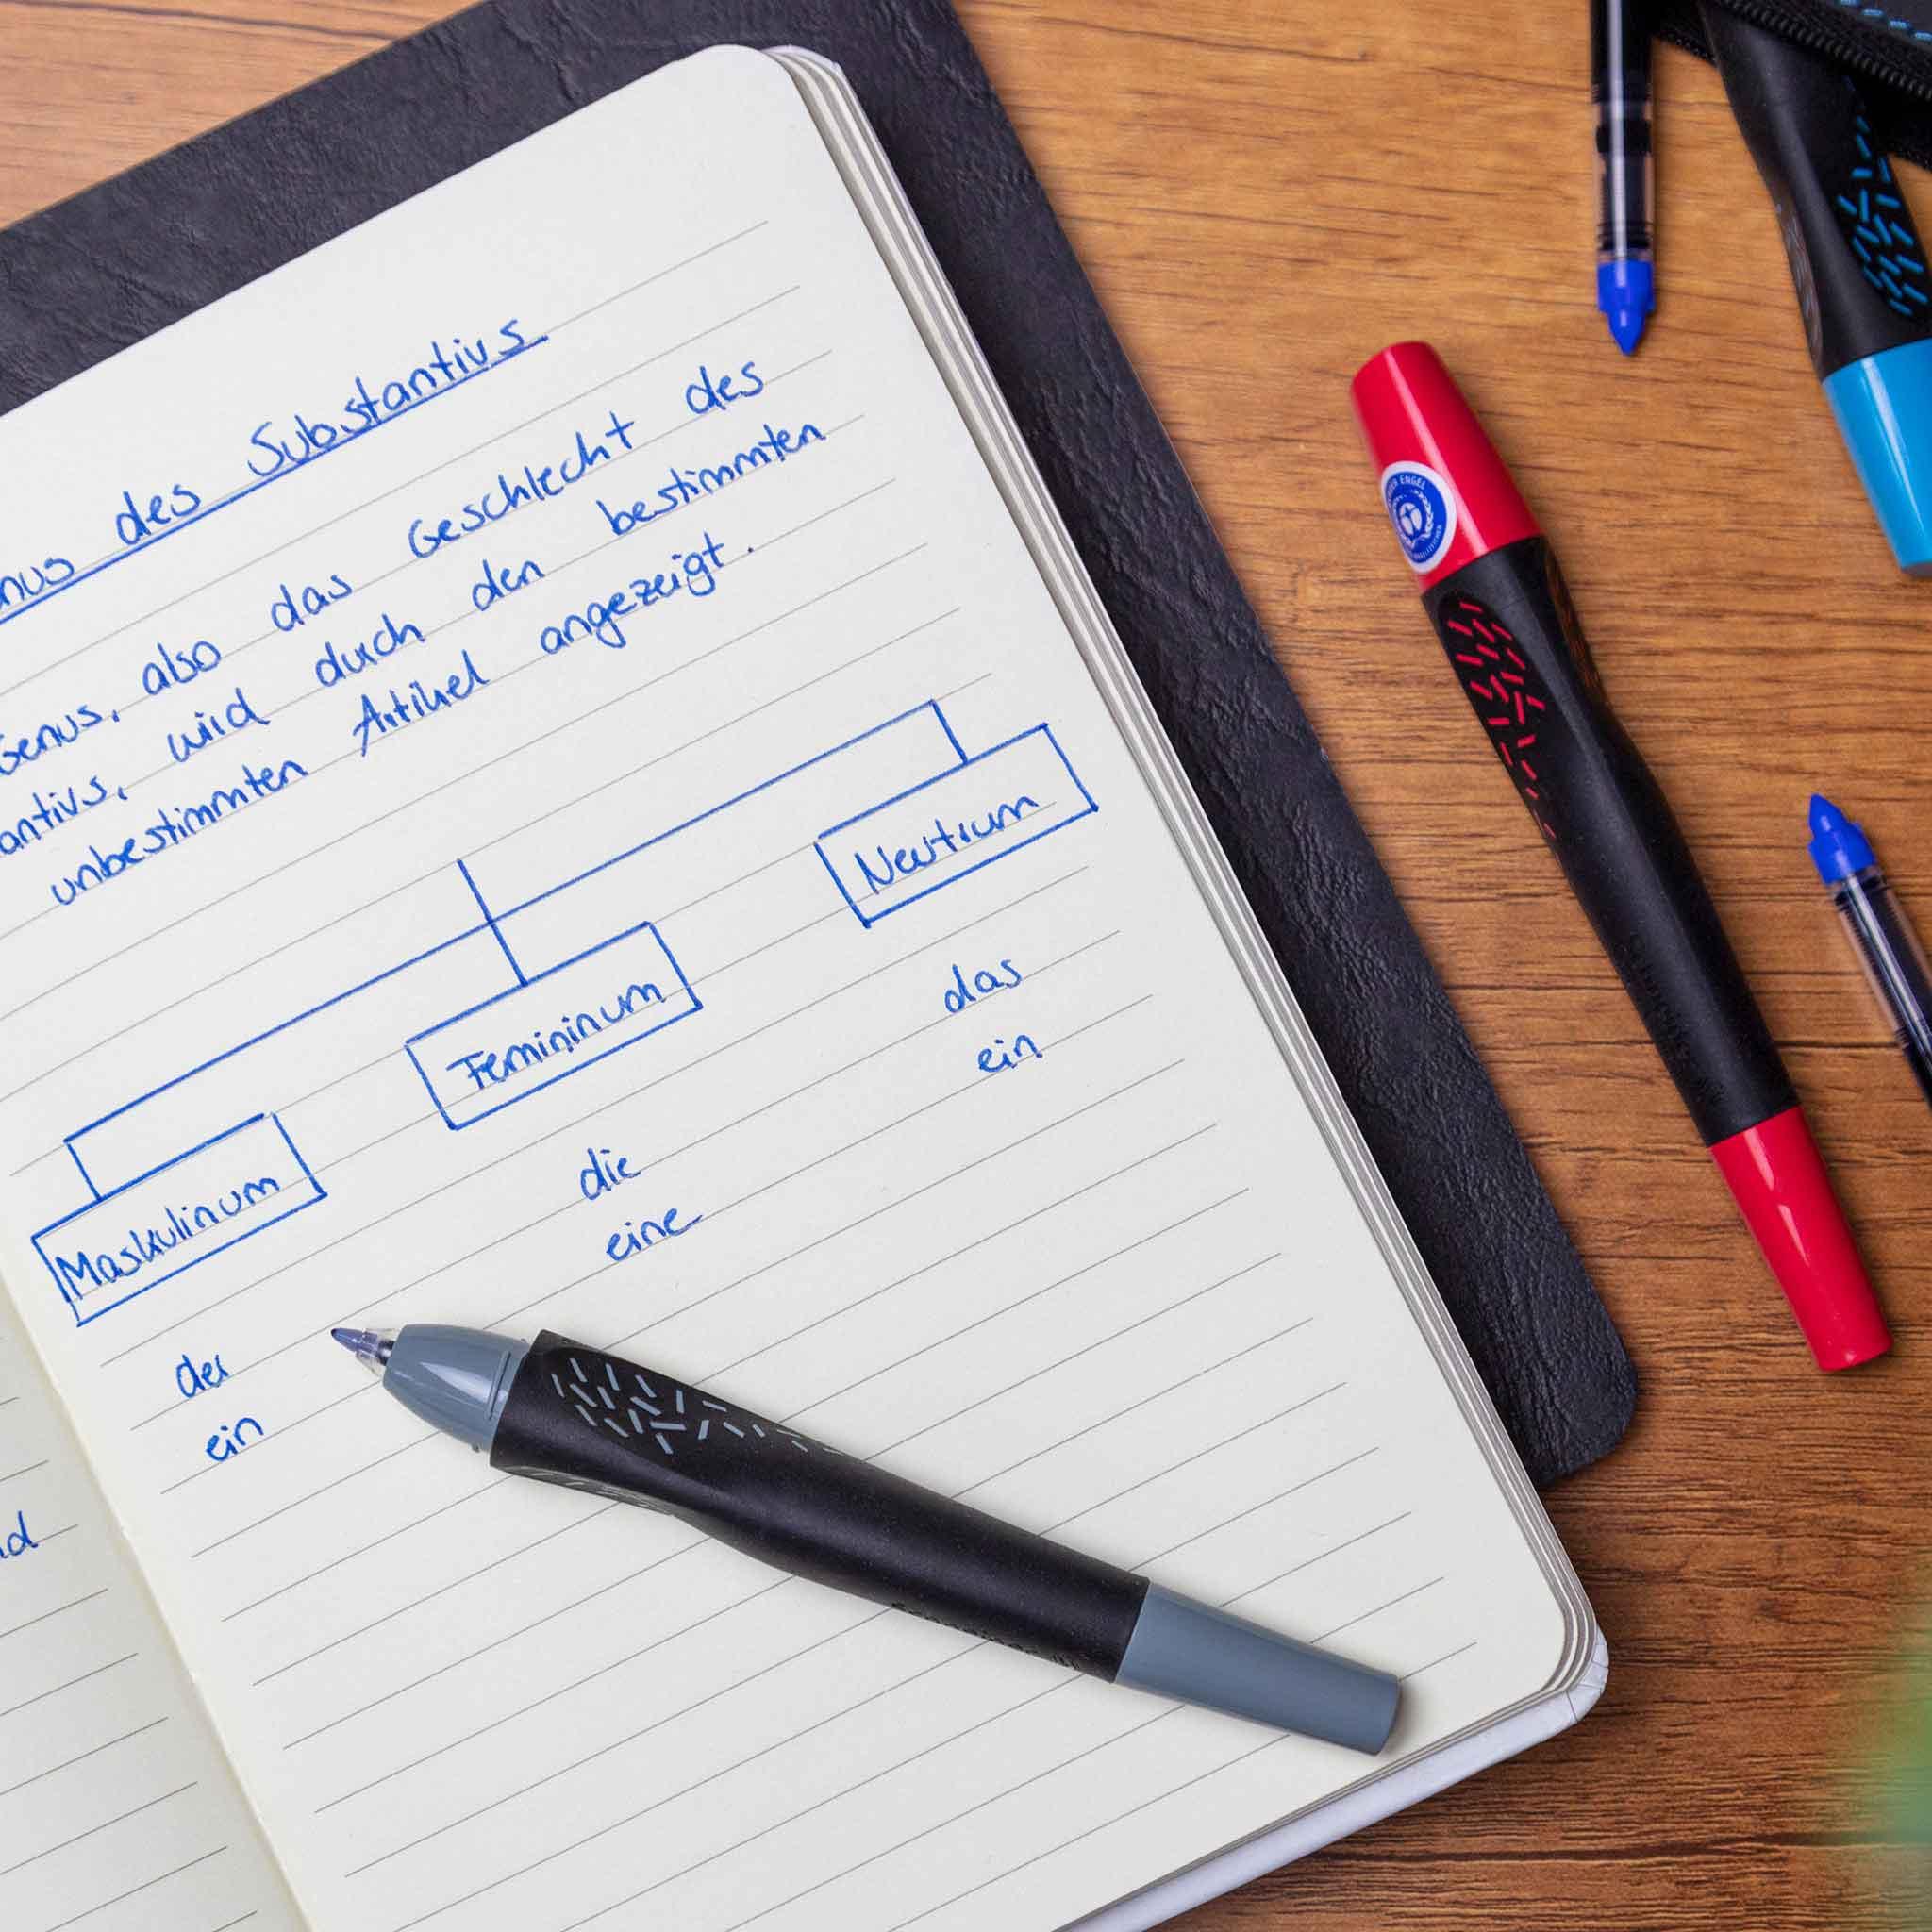 nus des Substantivs
Genus, also das Geschlecht des
antivs, wird durch den bestimmten
unbestimmten Artikel angezeigt.
Neutrum
Femininum
Maskulinum
das
ein
die
eine
der
ein